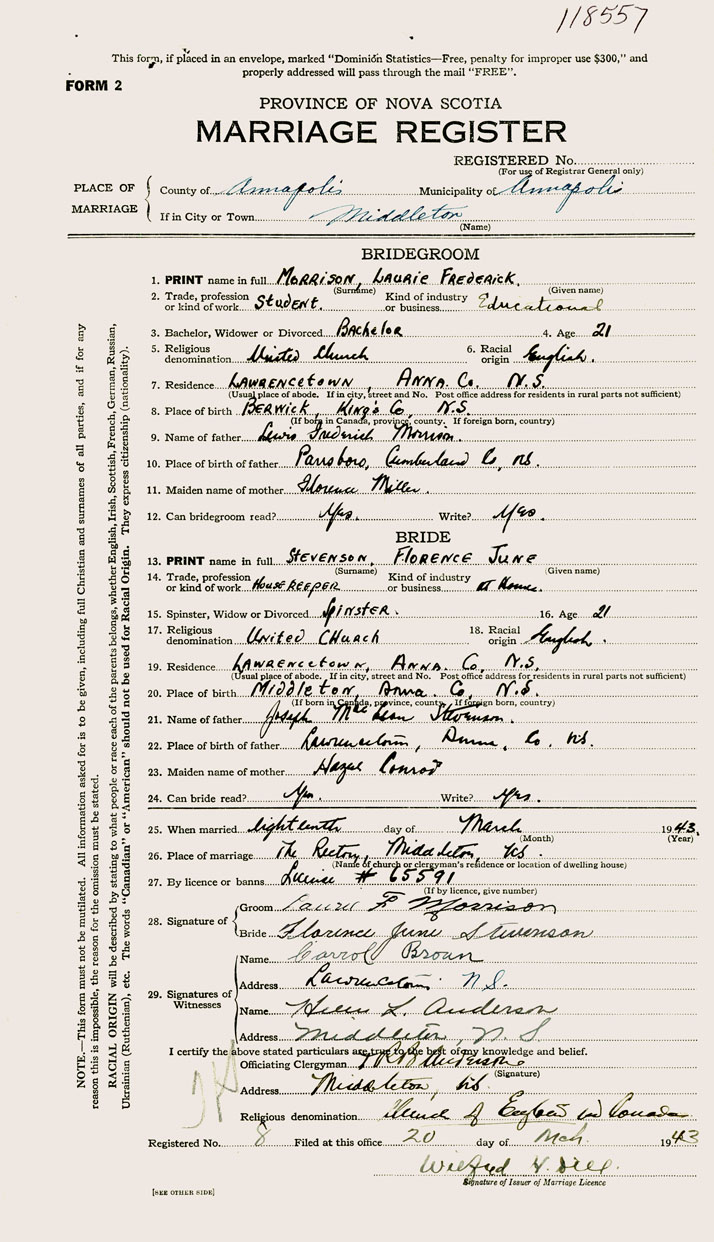 118557
This form, if placed in an envelope, marked "Dominion Statistics—Free, penalty for improper use $300," and
properly addressed will pass through the mail "FREE".
FORM 2
PROVINCE OF NOVA SCOTIA
MARRIAGE REGISTER
REGISTERED No.
(For use of Registrar General only)
PLACE OF MARRIAGE
County of Annapolis Municipality of Annapolis
If in City or Town Middleton
(Name)
BRIDEGROOM
1. PRINT name in full MORRISON, LAURIE FREDERICK.
(Surname) (Given name)
2. Trade, profession or kind of work STUDENT. Kind of industry or business Educational
3. Bachelor, Widower or Divorced BACHELOR 4. Age 21
5. Religious denomination United Church 6. Racial origin English.
7. Residence LAWRENCETOWN, ANNA. CO. N.S.
(Usual place of abode. If in city, street and No. Post office address for residents in rural parts not sufficient)
8. Place of birth BERWICK, KING'S CO, N.S.
(If born in Canada, province, county. If foreign born, country)
9. Name of father Lewis Frederick Morrison.
10. Place of birth of father Parrsboro, Cumberland Co, N.S.
11. Maiden name of mother Florence Miller.
12. Can bridegroom read? Yes. Write? Yes.
BRIDE
13. PRINT name in full STEVENSON, FLORENCE JUNE
(Surname) (Given name)
14. Trade, profession or kind of work HOUSEKEEPER Kind of industry or business at Home.
15. Spinster, Widow or Divorced SPINSTER. 16. Age 21
17. Religious denomination UNITED CHURCH 18. Racial origin English.
19. Residence LAWRENCETOWN, ANNA. CO, N.S.
(Usual place of abode. If in city, street and No. Post office address for residents in rural parts not sufficient)
20. Place of birth Middleton, Anna. Co, N.S.
(If born in Canada, province, county. If foreign born, country)
21. Name of father Joseph Stevenson.
22. Place of birth of father Lawrencetown, Anna, Co. N.S.
23. Maiden name of mother Hazel Conrad
24. Can bride read? Yes. Write? Yes.
25. When married Eighteenth day of March 1943.
(Month) (Year)
26. Place of marriage The Rectory, Middleton, N.S.
(Name of church or clergyman's residence or location of dwelling house)
27. By licence or banns License # 65591
(If by licence, give number)
28. Signature of
Groom Laurie F Morrison
Bride Florence June Stevenson
29. Signatures of Witnesses
Name Carrol Brown
Address Lawrencetown N.S.
Name Helen L. Anderson
Address Middleton, N.S
I certify the above stated particulars are true to the best of my knowledge and belief.
Officiating Clergyman
(Signature)
Address Middleton, N.S
Religious denomination Church of England in Canada
Registered No. 8 Filed at this office 20 day of Mch 1943
Wilfred
Signature of Issuer of Marriage Licence
[SEE OTHER SIDE]
NOTE.—This form must not be mutilated. All information asked for is to be given, including full Christian and surnames of all parties, and if for any
reason this is impossible, the reason for the omission must be stated.
RACIAL ORIGIN will be described by stating to what people or race each of the parents belongs, whether English, Irish, Scottish, French, German, Russian,
Ukrainian (Ruthenian), etc. The words "Canadian" or "American" should not be used for Racial Origin. They express citizenship (nationality).